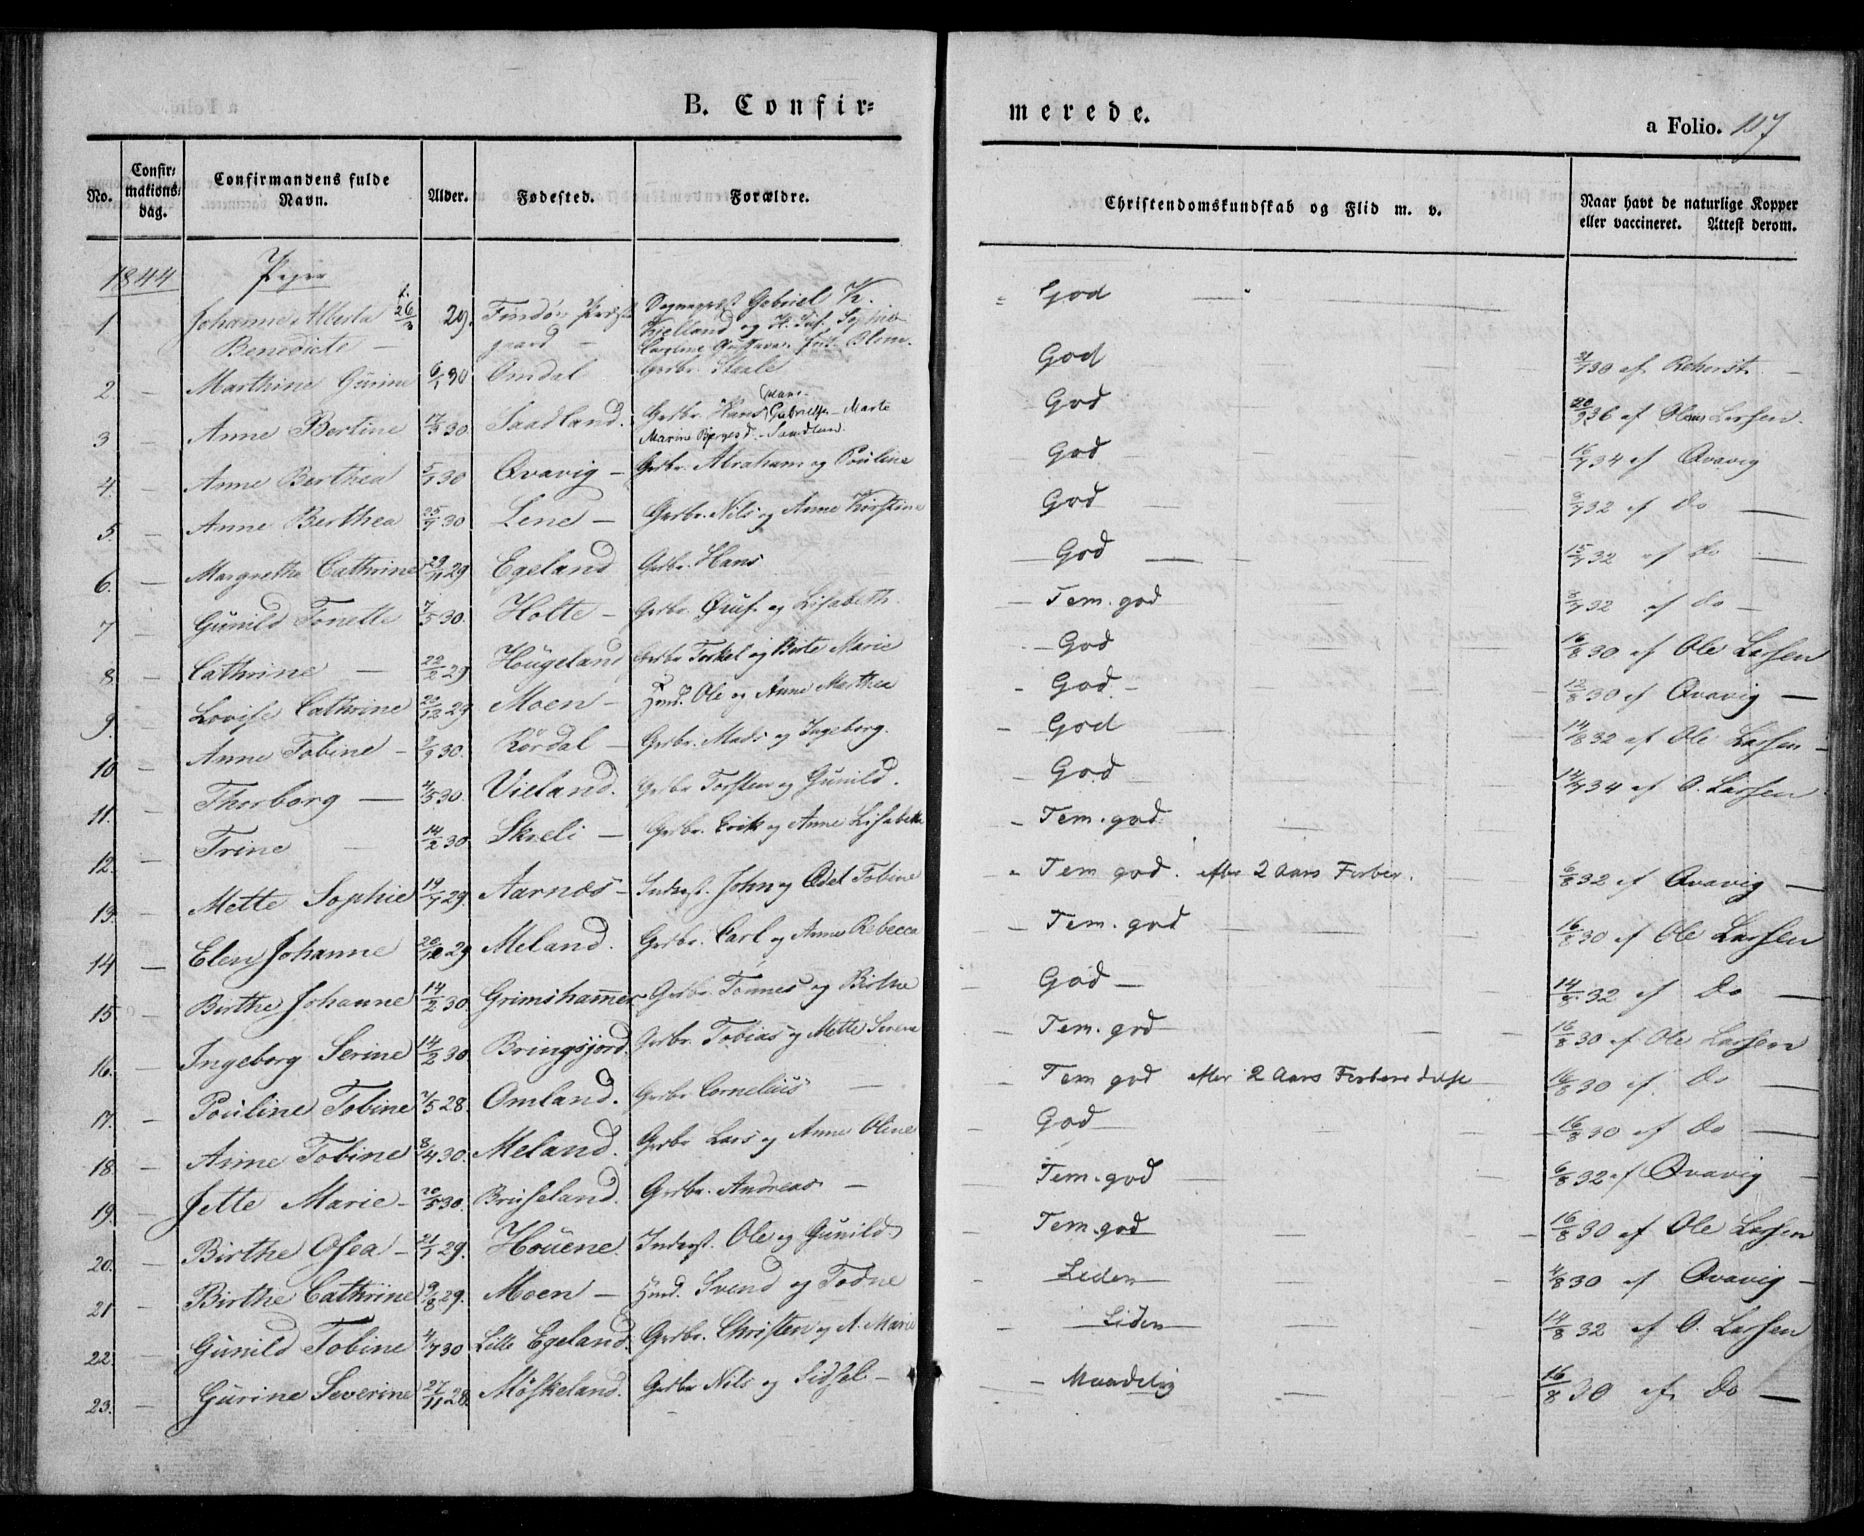 B. Confir=
merede.
a Folio. 117
No. Confir-mations-dag. Confirmandens fulde Navn. Alder. Fødested. Forældre.
Christendomskundskab og Flid m. v. Naar havt de naturlige Kopper eller vaccineret. Attest derom.
1844 Piger
1 Johanne Alberta Benedicte — 26/3 29. Findö Præstegaard — Sognepræst Gabriel K. Kielland og H. Sophie Caroline Gustava Blom. God
2. — Marthine Gurine 6/1 30 Omdal Grbr. Staale God /7 30 af
3 — Anne Bertine 17/3 30 Saadland. Grbr. Hans Gabrielsen – Marte Marine Børgesd. Saadland God 20/9 36 af Larsen.
4. — Anne Berthea 5/1 30 Qvavig — Grbr. Abraham og Pouline God 16/7 34 af Qvavig
5. — Anne Berthea 25/7 30 Lene — Grbr. Nils og Anne Kirstine God 9/7 32 af Do —
6. — Margrethe Cathrine 29/11 29 Egeland Grbr. Hans God — 15/7 32 af Do —
7 — Gunild Tonette 7/5 30. Holte — Grbr. og Lisabeth. Tem. god 8/7 32 af Do —
8. — Cathrine — 22/2 29 Hougeland Grbr. Terkel og Birte Marie God 16/8 30 af Ole Larsen
9. — Lovise Cathrine 20/12 29 Moen — Hmd. Ole og Anne Marthea God — 12/8 30 af Qvavig —
10 — Anne Tobine — 9/3 30. Rördal — Grbr. Mads og Ingeborg. God 14/8 32 af Ole Larsen —
11. — Thorborg — 4/5 30. Vieland. Grbr. Torsten og Gunild. God 14/7 34 af O. Larsen
12. — Trine — 14/2 30. Skreli — Grbr. Erik og Anne Lisabeth Tem. god
13. — Mette Sophie 19/7 29. Aarnæs — Inderst. John og Odel Tobine Tem god. efter 2 Aars Forber. 6/8 32 af Qvavig —
14 — Elen Johanne 20/12 29 Meland. Grbr. Carl og Anne Rebecca Tem. god 16/8 30 af Ole Larsen
15 — Birthe Johanne 14/2 30. Grimshammer Grbr. Tønnes og Birthe God — 14/8 32 af Do —
16. — Ingeborg Serine 14/2 30. Bringsjord. Grbr. Tobias og Mette Serene Tem. god 16/8 30 af Ole Larsen
17. — Pouline Tobine 7/5 28. Omland. Grbr. Cornelius — Tem god efter 2 Aars Forberedelse 16/8 30 af Do —
18. — Anne Tobine 8/4 30. Meland. Grbr. Lars og Anne Oline God 16/8 30 af Do —
19. — Jette Marie — 20/5 30. Bruseland. Grbr. Andreas — Tem. god 6/8 32 af Qvavig —
20. — Birthe Osea — 21/1 29. Houene. Inderst. Ole og Gunild Tem. god 16/8 30 af Ole Larsen
21 — Birthe Cathrine 9/8 29. Moen — Hmd. Svend og Todne Liden 4/8 30 af Qvavig —
22. — Gunild Tobine 4/7 30 Lille Egeland. Grbr. Christen og A. Marie Liden 14/8 32 af O. Larsen
23. — Gurine Severine 27/11 28. Möskeland. Grbr. Nils og Sidsel — Maadelig 16/8 30 af Do —